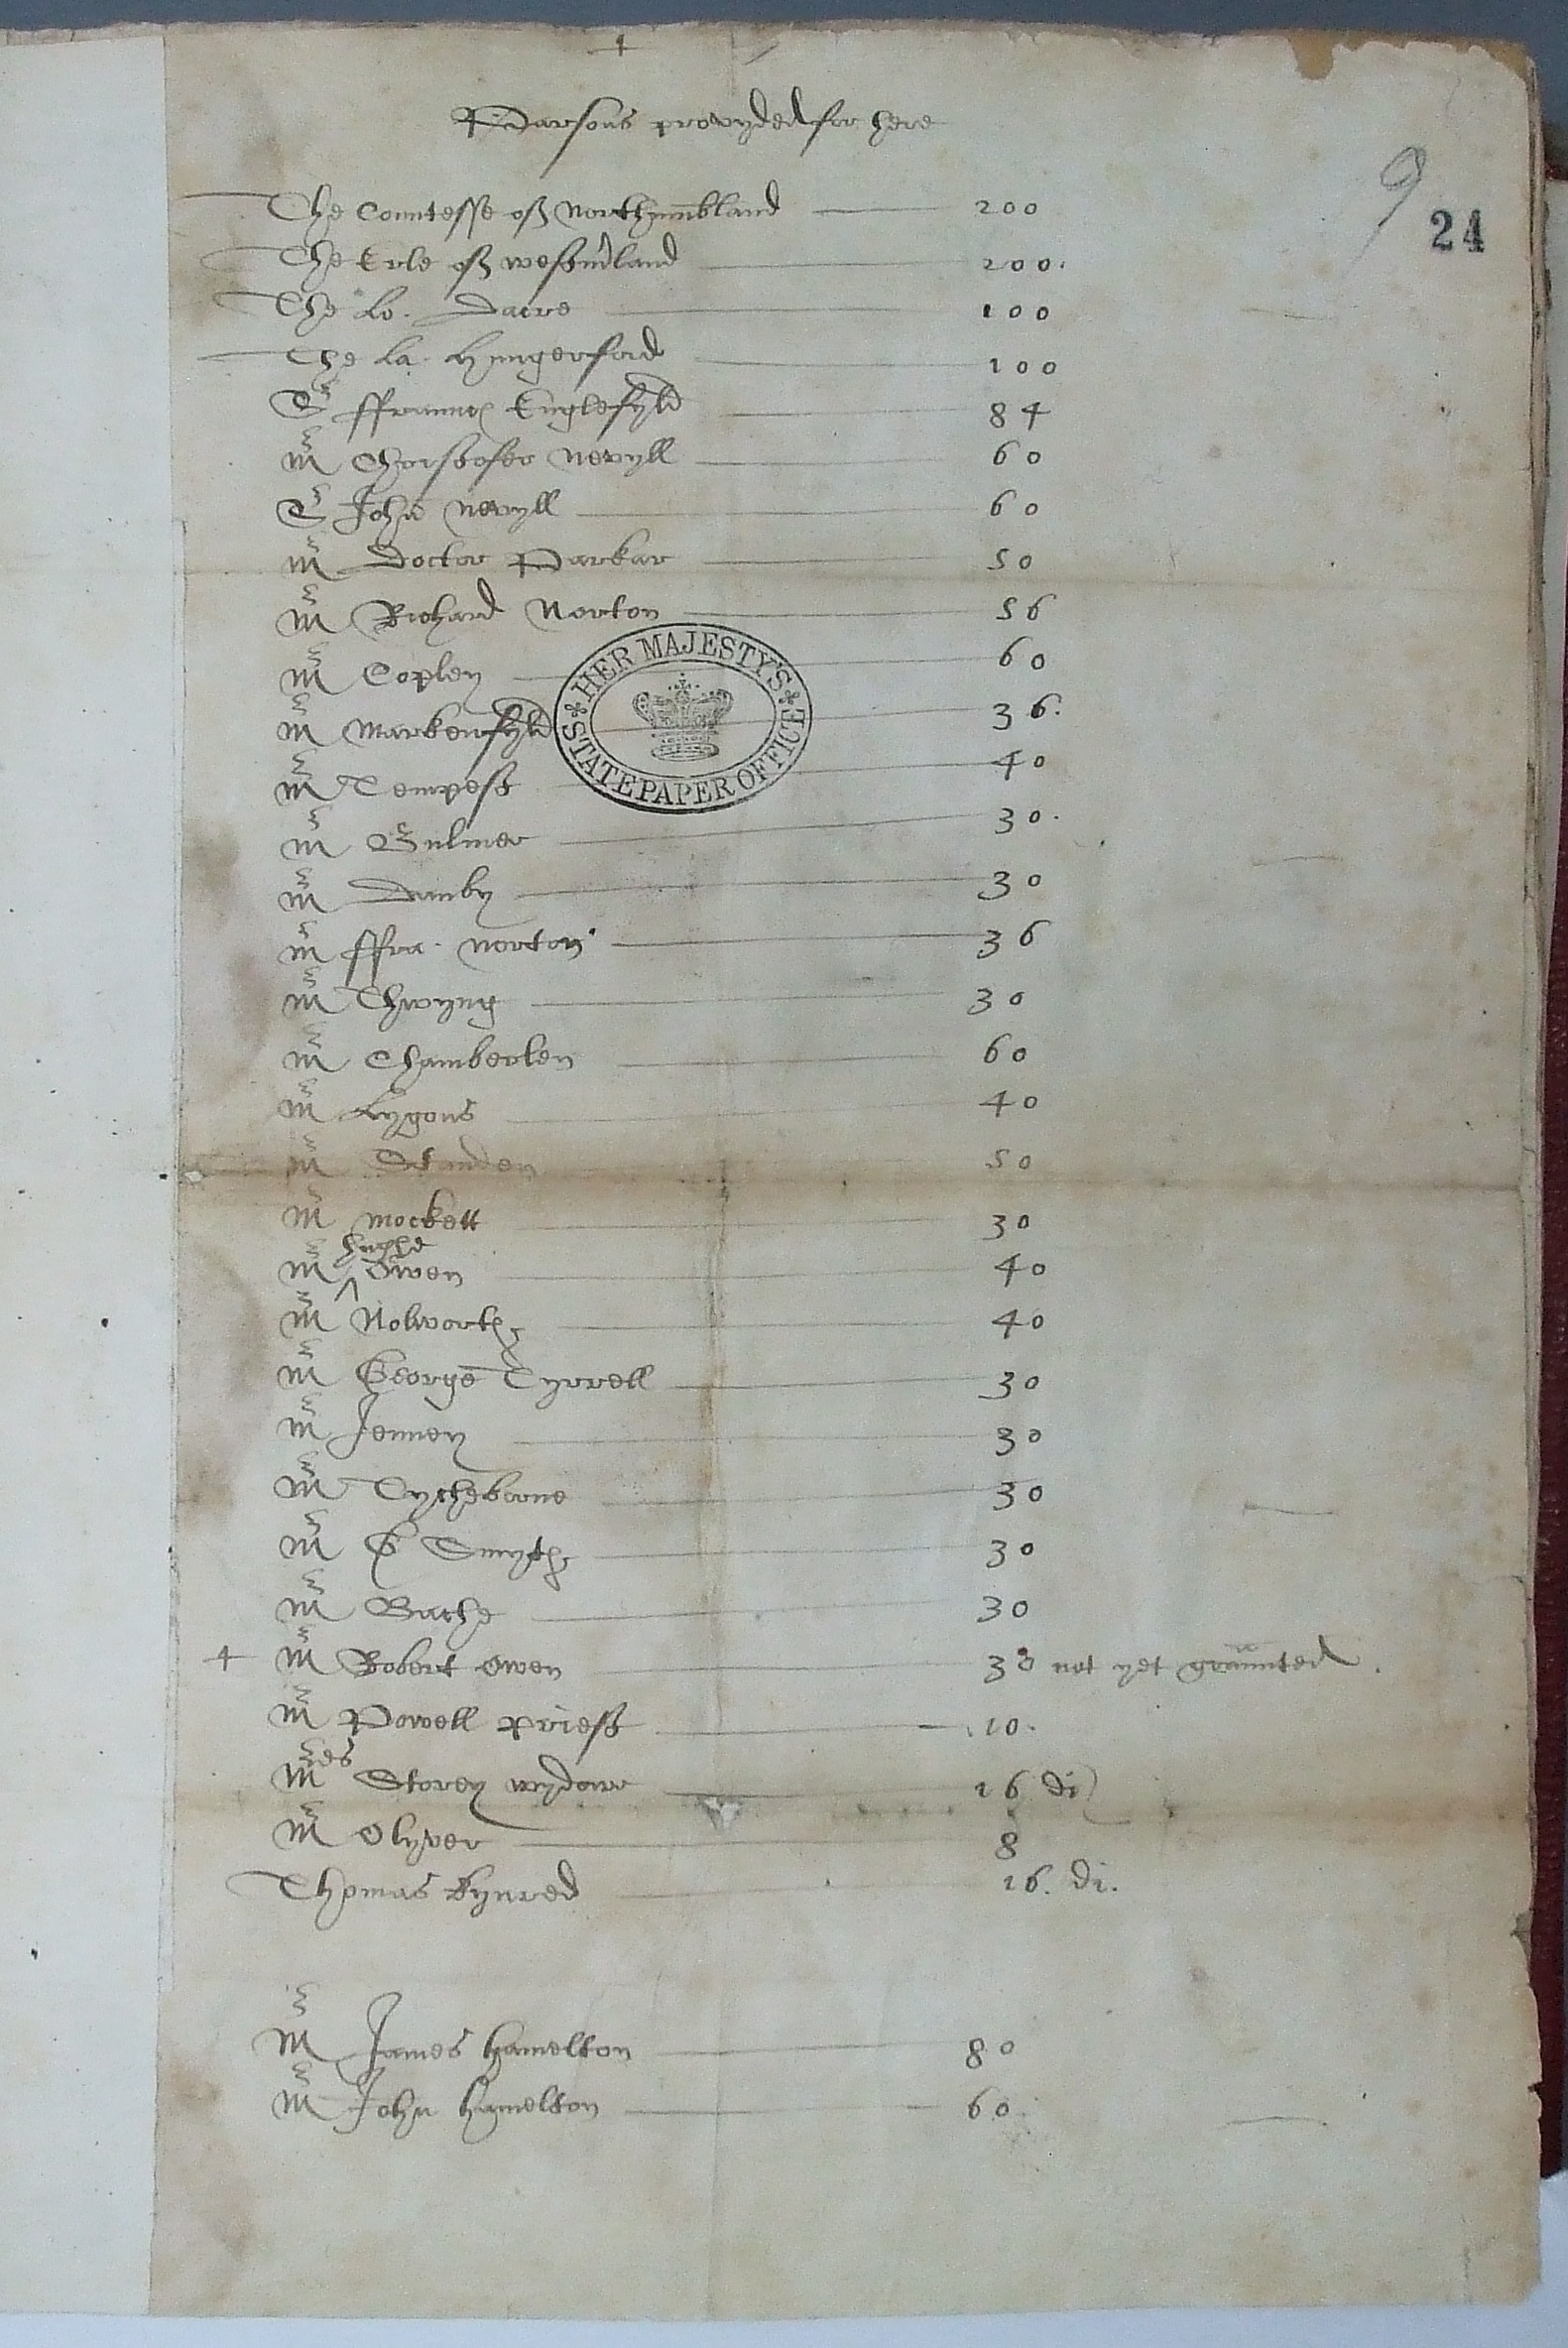 Parsons provyded for here
9
24
The Countesse off Northumbland 200
The Erle off westmland 200.
The Lo. Dacre 100
The La. Hungerford 100
Sr ffraunc Englefyld 84
Mr Chrystofer Nevyll 60
Sr John Nevyll 60
Mr Doctor Parkar 50
Mr Richard Norton 56
Mr Copley 60
Mr Markenfyld 36.
Mr Tempest 40
Mr Bulmer 30.
Mr Danby 30
Mr ffra. Norton 36
Mr Thwyng 30
Mr Chamberlen 60
Mr Lygons 40
Mr Standen 50
Mr Mockett 30
Mr hughe Owen 40
Mr Nolworth 40
Mr George Tyrrell 30
Mr Jenney 30
Mr Tycheborne 30
Mr G Smyth 30
Mr Bache 30
+ Mr Robert Owen 30 not yet graunted.
Mr Powell priest 10.
Mres Storey wydow 16 di
Mr Olyver 8
Thomas Kynred 16. di.
Mr James Hamelton 80
Mr John Hamelton 60
HER MAJESTY'S STATE PAPER OFFICE